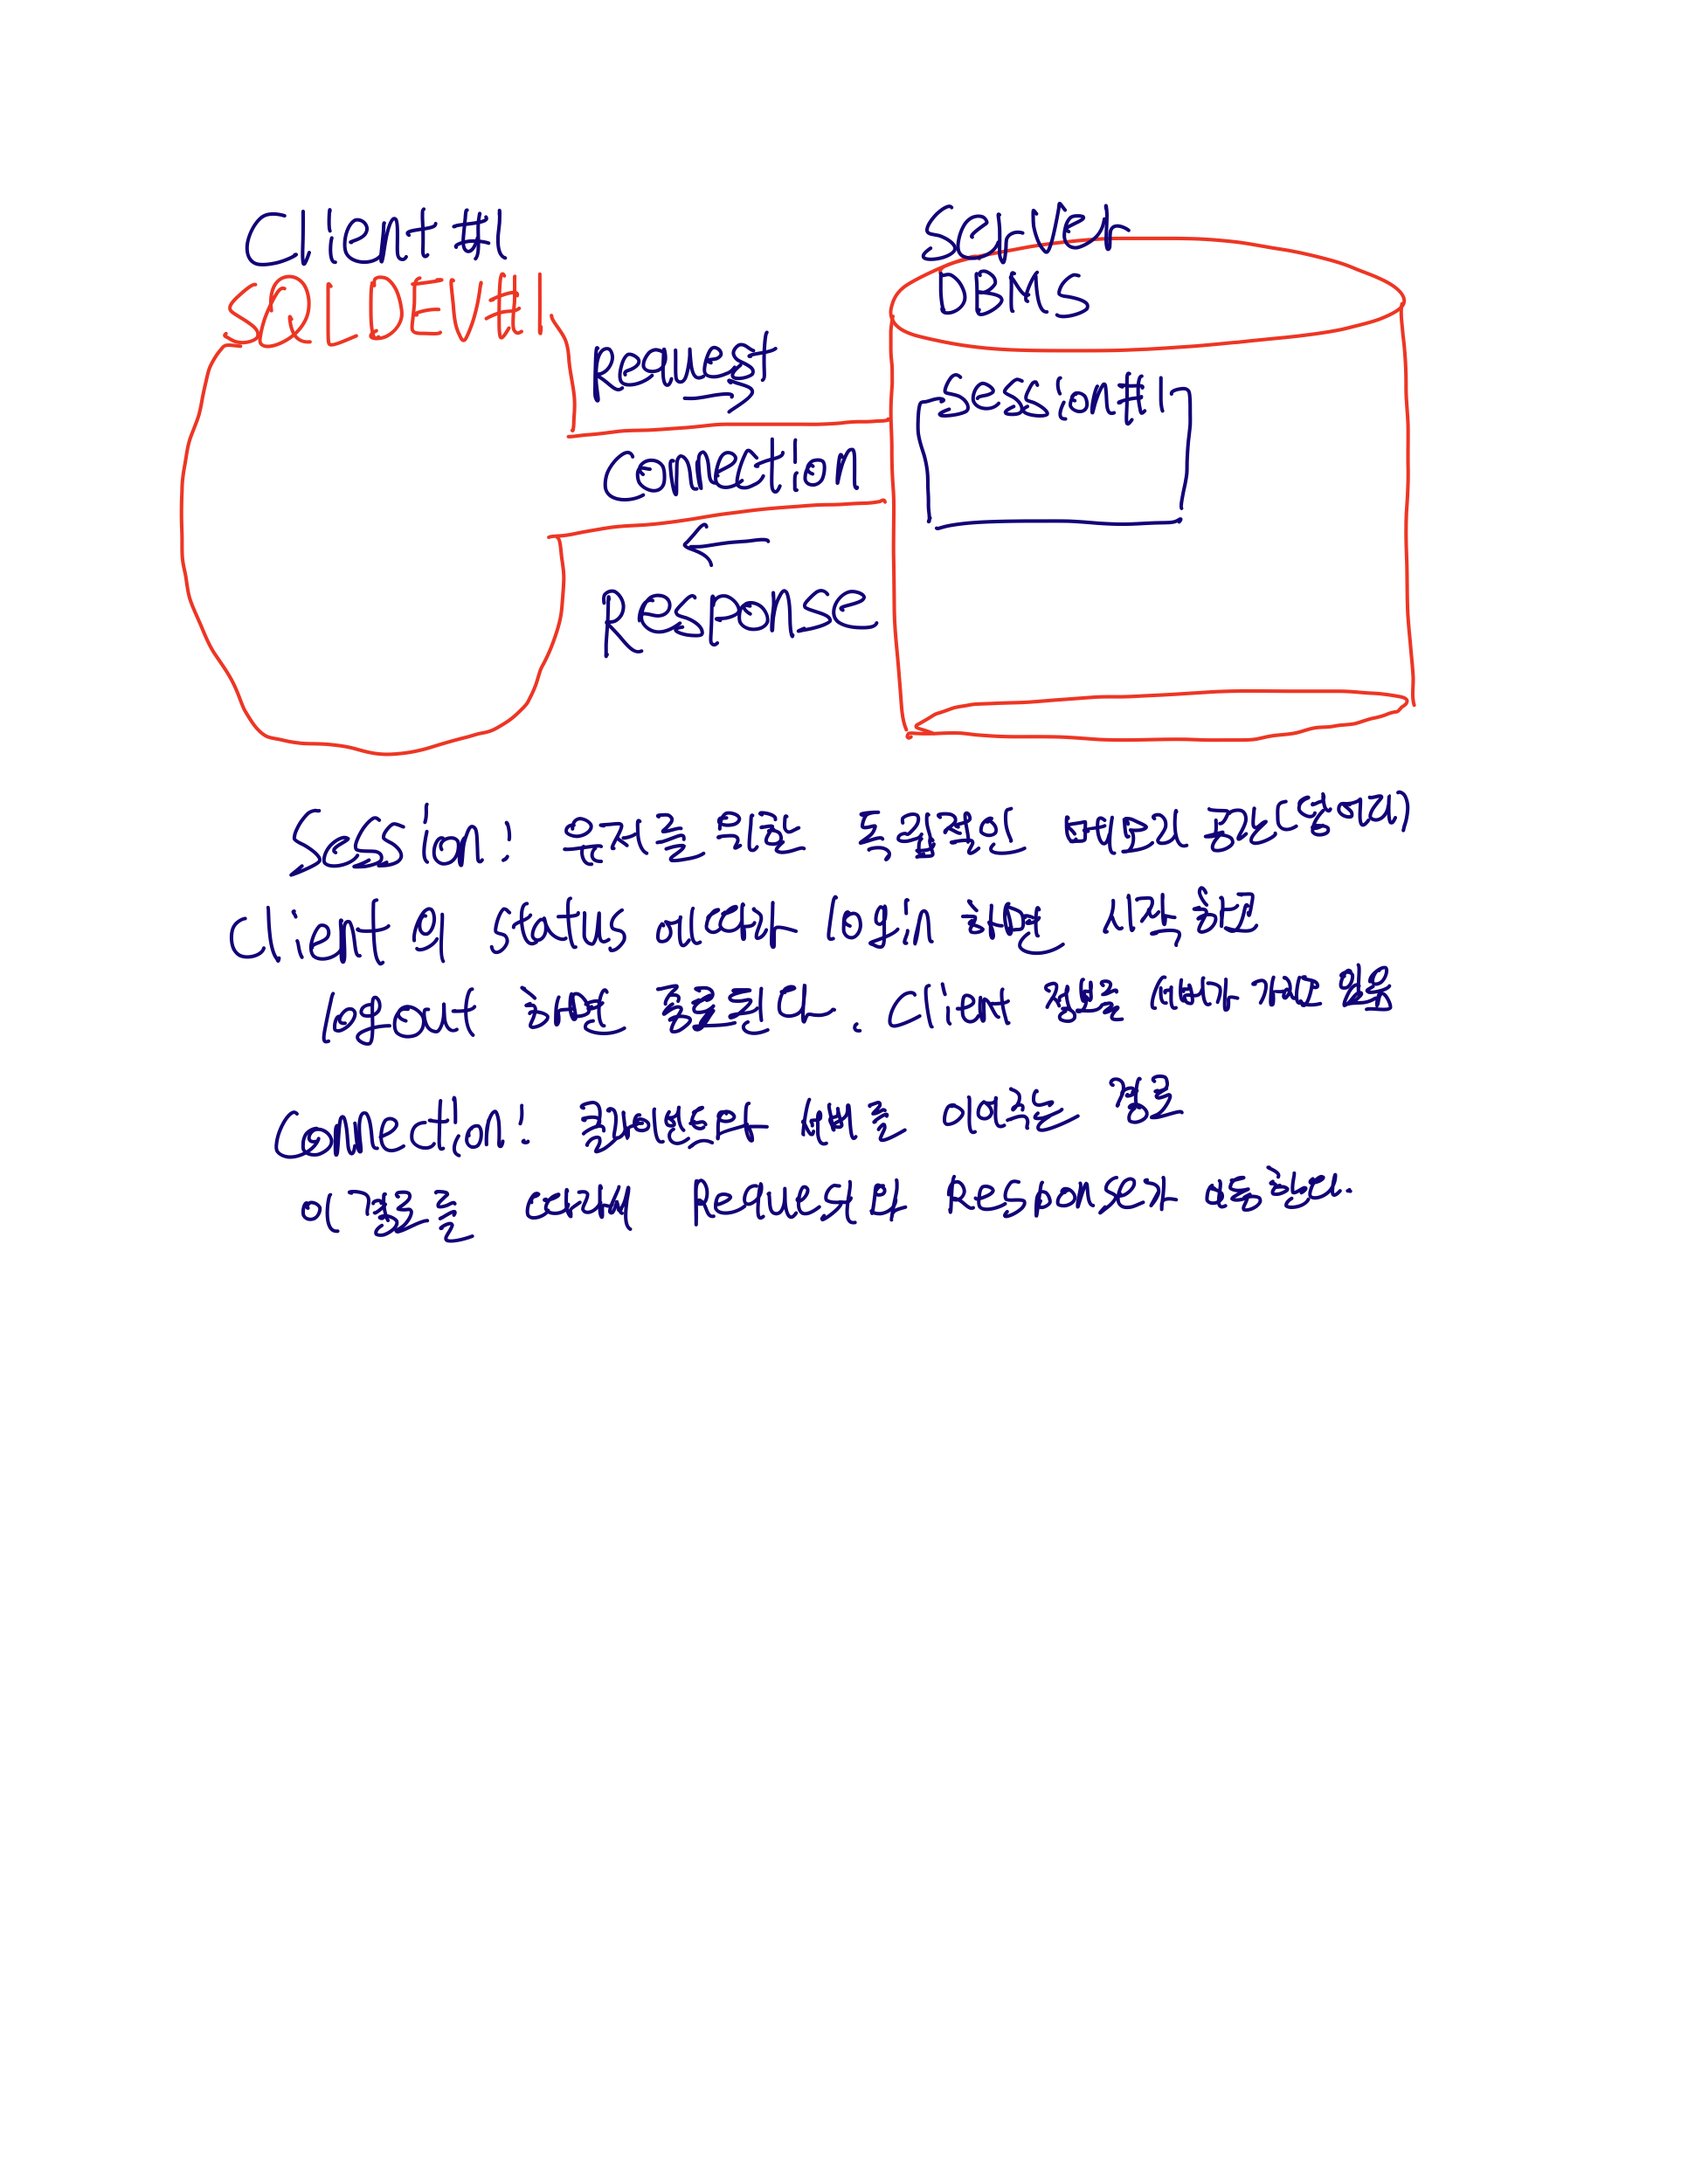 Client #1
SQLDEV#1
Server
DBMS
Request
Session#1
Connection
Response
Session: 유저를 위한 독립적인 메모리 공간(덩어리)
Client의 status 에따라 login 하면 시작하고
logout 하면 종료된다. Client 정보를 서버가 가지고 있음
Connection: 클라이언트와 서버를 이어주는 경로
이 경로를 따라서 Request와 Response가 이동한다.